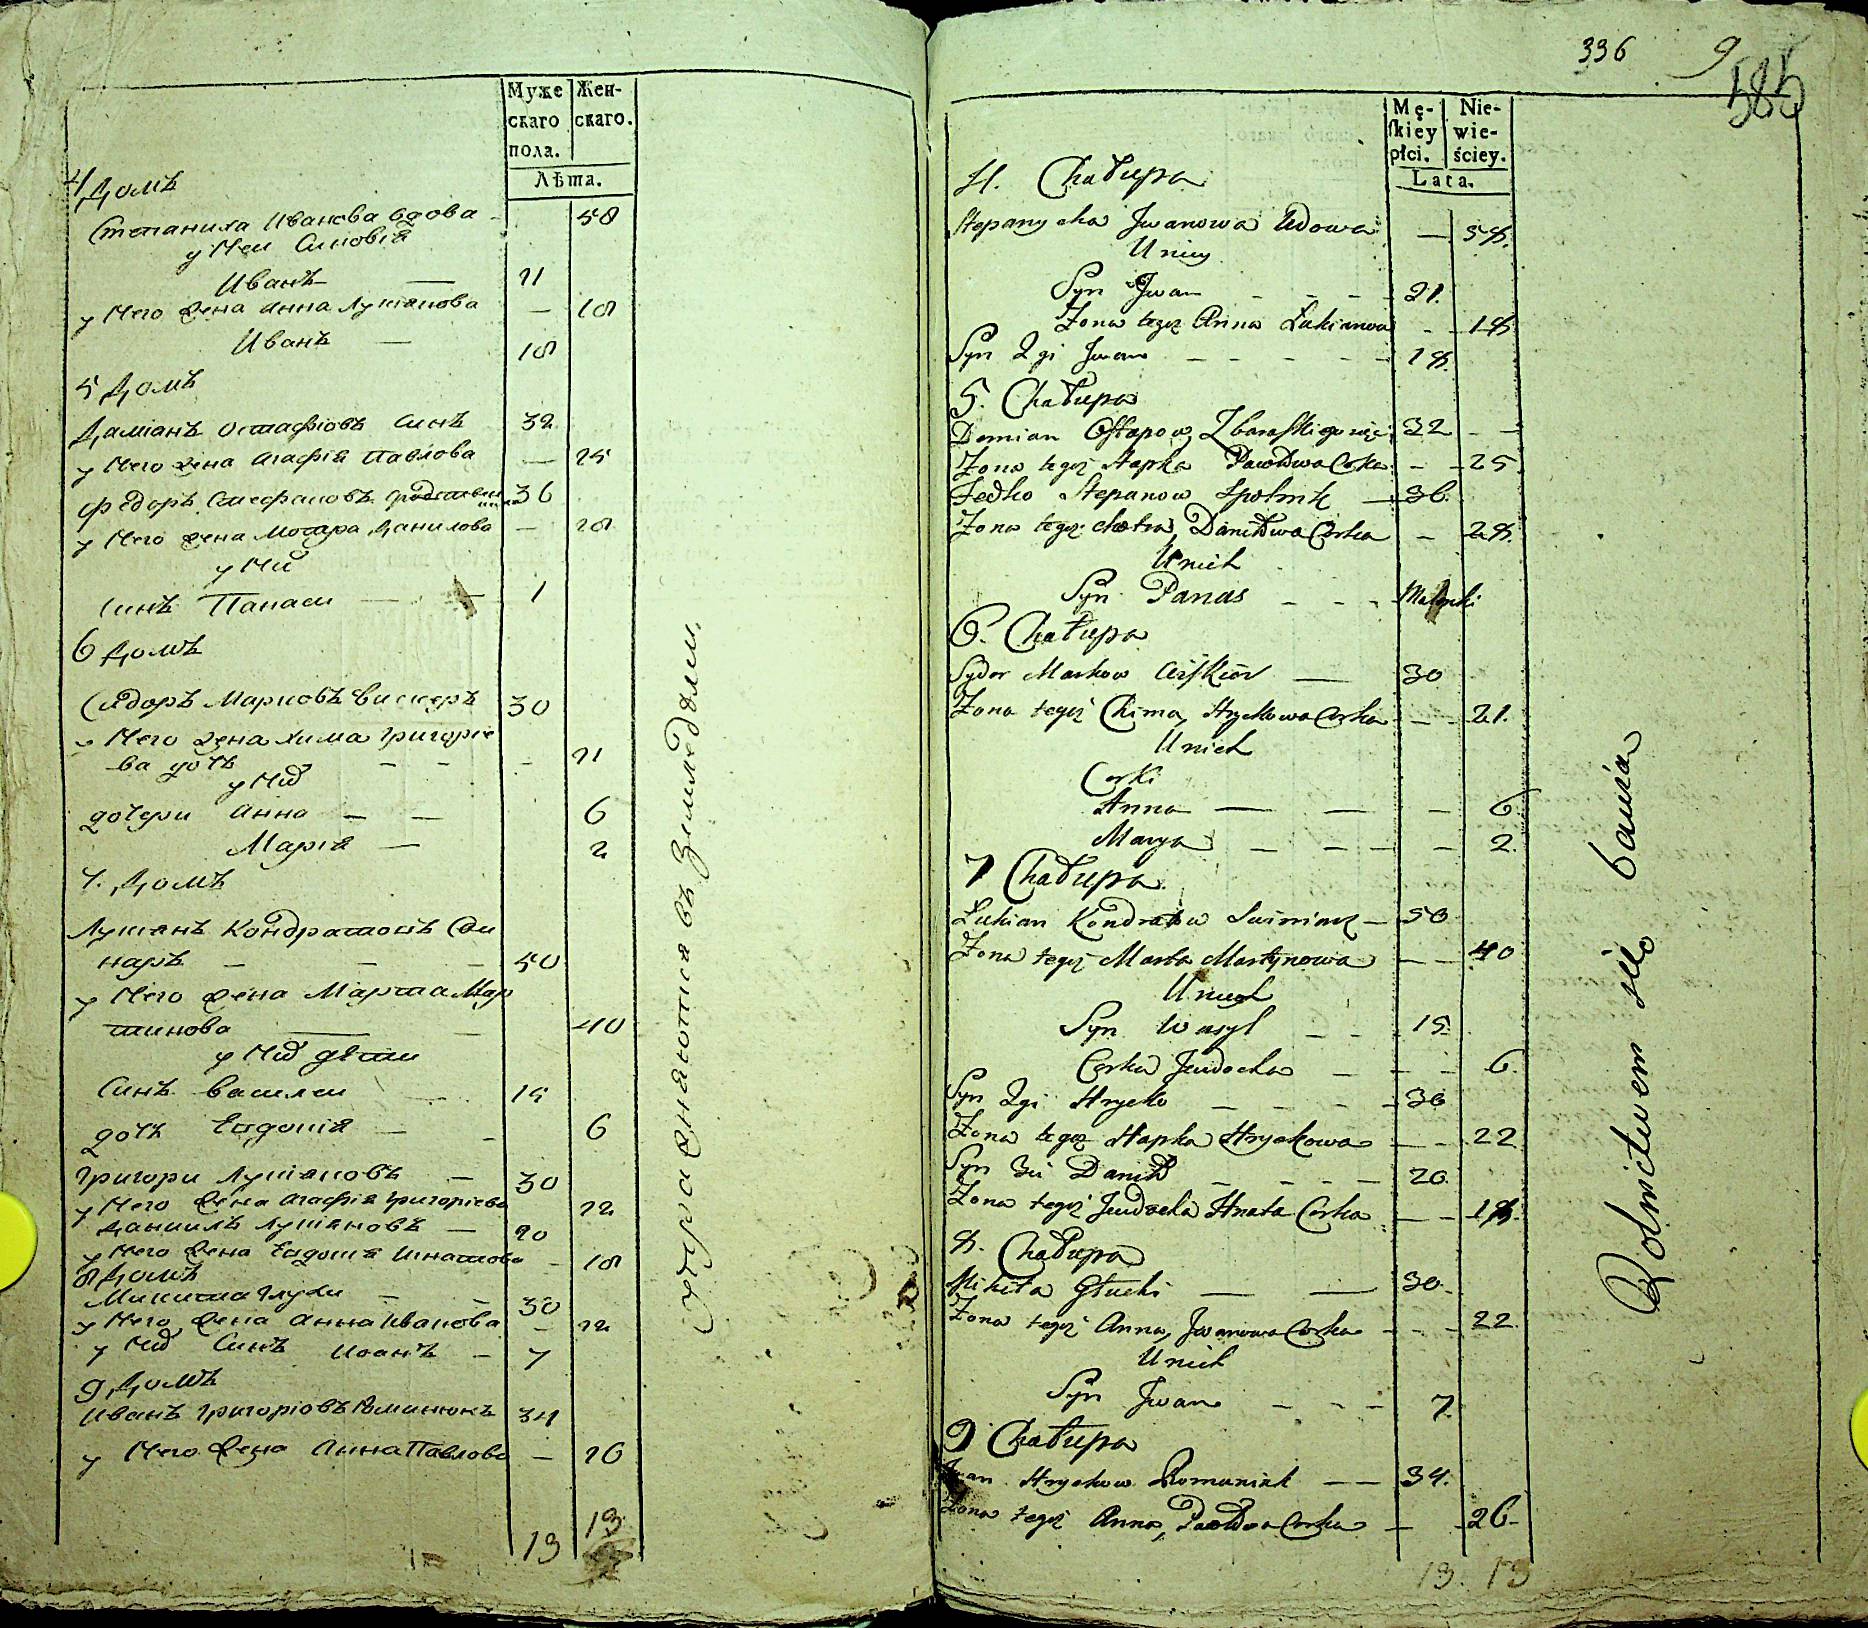 Муже
скаго
пола.
Жен-
скаго.
Лѣта.
4 Домъ
Степаниха Иванова вдова - 58
у Неи Синовія
Иванъ — 21
у Него жена Анна Лукіянова — 18
Иванъ — 18
5 Домъ
Даміанъ Остафіовъ Синъ 32
у Него жена Агафія Павлова — 25
Федоръ Стефановъ 36
у Него жена Мотря Данилова — 28
у Них
Синъ Панаси — 1
6 Домъ
Сидоръ Марковъ 30
у Него жена Хима Григоріе
ва дочь - - - 21
у Них
дочери Анна — — 6
Марія — 2
7. Домъ
Лукіянъ Кондратовъ
— — — 50
у Него жена Марта Мар
тинова — — 40
у Них дѣти
Синъ Василеи 15
дочь Евдокія — - 6
Григори Лукіяновъ — 30
у Него жена Агафія Григоріева 22
Даниилъ Лукіяновъ — 20
у Него жена Евдокія Игнатова - 18
8 Домъ
Микита Глухи — — 30
у Него жена Анна Иванова - 22
у Них Синъ Иоанъ — 7
9 Домъ
Иванъ Григоріовъ Романюкъ 34
у Него жена Анна Павлова — 26
13 13
упражняются въ Земледѣлии.
336 9
585
Mę-
ſkiey
płci.
Nie-
wie-
ściey.
Lata.
4. Chałupa
Stepanycha Jwanowa Wdowa — 58.
U niey
Syn Jwan - - - - 21.
Żona tegoż Anna Łukianowa - - 18
Syn 2gi Jwan — — — — — 18.
5. Chałupa
Demian Ostapow 32 - —
Żona tegoż Hapka Pawłowa Corka - - 25
Fedko Stepanow Spolnik — 36.
Żona tegoż Motra, Daniłowa Corka - 28.
U nich
Syn Panas - - -
6. Chałupa
Sydor Markow — 30
Żona tegoż Chima, Hryckowa Corka - - 21.
U nich
Corki
Anna — — — 6
Marya — — — — 2.
7 Chałupa
Łukian Kondratow — 50
Żona tegoż Marta Martynowa — — 40
U nich
Syn Wasyl - - - 15.
Corka Jewdocha — - - 6.
Syn 2gi Hrycko — - - - 30
Żona tegoż Hapka Hryckowa — - 22
Syn 3ci Daniło — — — — 20.
Żona tegoż Jewdocha Hnata Corka — - 18.
8. Chałupa
Mikita Głuchi — — 30.
Żona tegoż Anna, Jwanowa Corka - - - 22
U nich
Syn Jwan - - - 7.
9 Chałupa
Jwan Hryckow Romaniuk — — 34.
Żona tegoż Anna, Pawłowa Corka — - 26-
13. 13
Rolnictwem się bawią